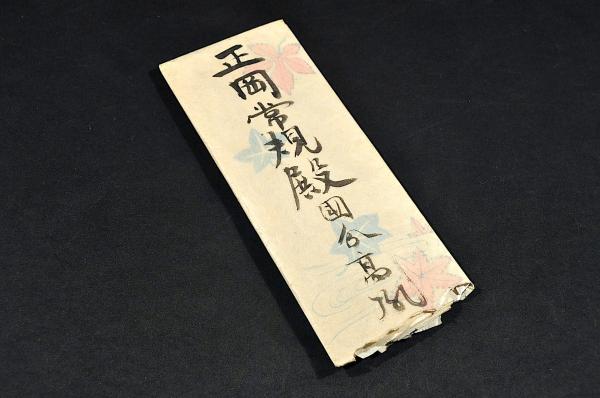 正岡常規殿国分高胤